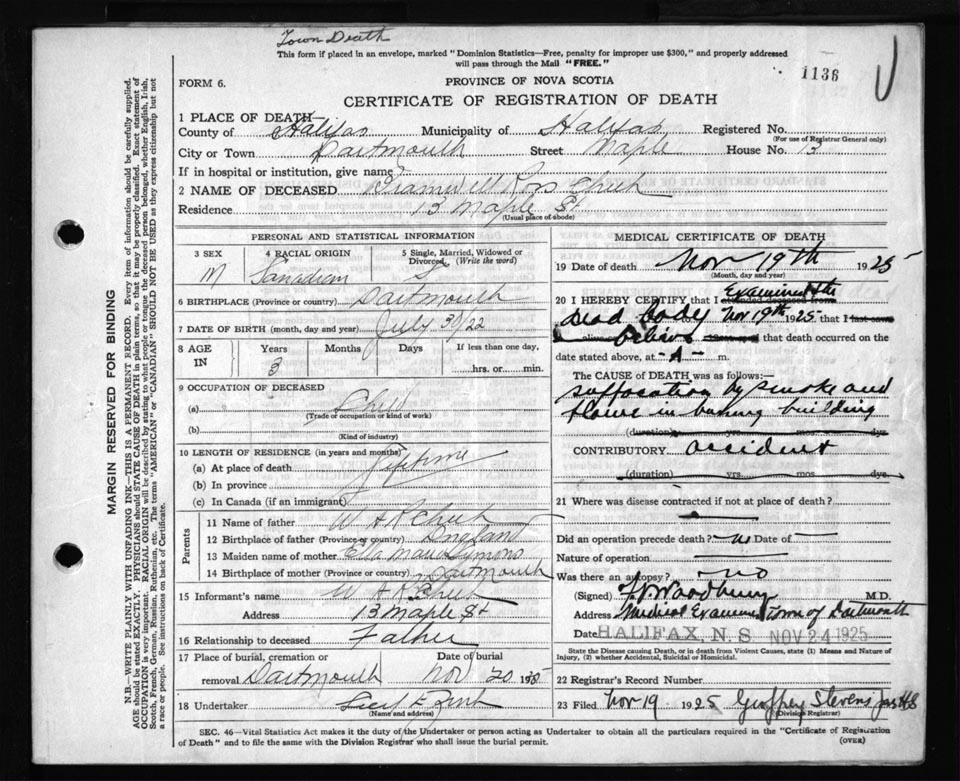 Town Death
This form if placed in an envelope, marked "Dominion Statistics—Free, penalty for improper use $300," and properly addressed
will pass through the Mail "FREE."
1136
FORM 6.
PROVINCE OF NOVA SCOTIA
CERTIFICATE OF REGISTRATION OF DEATH
1 PLACE OF DEATH—
County of Halifax Municipality of Halifax Registered No.
(For use of Registrar General only)
City or Town Dartmouth Street Maple House No. 13
If in hospital or institution, give name
2 NAME OF DECEASED Bramwell Ross
Residence 13 Maple St
(Usual place of abode)
PERSONAL AND STATISTICAL INFORMATION
3 SEX M
4 RACIAL ORIGIN Canadian
5 Single, Married, Widowed or Divorced (Write the word) S
6 BIRTHPLACE (Province or country) Dartmouth
7 DATE OF BIRTH (month, day and year) July 30/22
8 AGE IN Years 3 Months Days If less than one day, hrs. or min.
9 OCCUPATION OF DECEASED
(a) Child
(Trade or occupation or kind of work)
(b)
(Kind of industry)
10 LENGTH OF RESIDENCE (in years and months)
(a) At place of death Lifetime
(b) In province
(c) In Canada (if an immigrant)
Parents
11 Name of father W A R
12 Birthplace of father (Province or country) England
13 Maiden name of mother Ella Maud Symons
14 Birthplace of mother (Province or country) Dartmouth
15 Informant's name W A R
Address 13 Maple St
16 Relationship to deceased Father
17 Place of burial, cremation or removal Dartmouth
Date of burial Nov 20 19
18 Undertaker
(Name and address)
MEDICAL CERTIFICATE OF DEATH
19 Date of death Nov 19th 1925
(Month, day and year)
20 I HEREBY CERTIFY that I attended deceased from Examined the
dead body Nov 19th 1925, that I last saw
believe that death occurred on the
date stated above, at -A- m.
The CAUSE of DEATH was as follows:—
suffocation by smoke and
flame in burning building
(duration) yrs. mos. dys.
CONTRIBUTORY accident
(duration) yrs. mos. dys.
21 Where was disease contracted if not at place of death?
Did an operation precede death? no Date of
Nature of operation
Was there an autopsy? no
(Signed) Woodbury M.D.
Address Medical Examiner Town of Dartmouth
Date HALIFAX, N. S NOV 24 1925
State the Disease causing Death, or in death from Violent Causes, state (1) Means and Nature of
Injury, (2) whether Accidental, Suicidal or Homicidal.
22 Registrar's Record Number
23 Filed Nov 19 1925 Geoffrey Stevens
(Division Registrar)
SEC. 46—Vital Statistics Act makes it the duty of the Undertaker or person acting as Undertaker to obtain all the particulars required in the "Certificate of Registration
of Death" and to file the same with the Division Registrar who shall issue the burial permit.
(OVER)
MARGIN RESERVED FOR BINDING
N.B.—WRITE PLAINLY WITH UNFADING INK—THIS IS A PERMANENT RECORD. Every item of information should be carefully supplied.
AGE should be stated EXACTLY. PHYSICIANS should STATE CAUSE OF DEATH in plain terms, so that it may be properly classified. Exact statement of
OCCUPATION is very important. RACIAL ORIGIN will be described by stating to what people or tongue the deceased person belonged, whether English, Irish,
Scotch, French, German, Russian, Ruthenian, etc. The terms "AMERICAN" or "CANADIAN" SHOULD NOT BE USED as they express citizenship but not
a race or people. See instructions on back of Certificate.